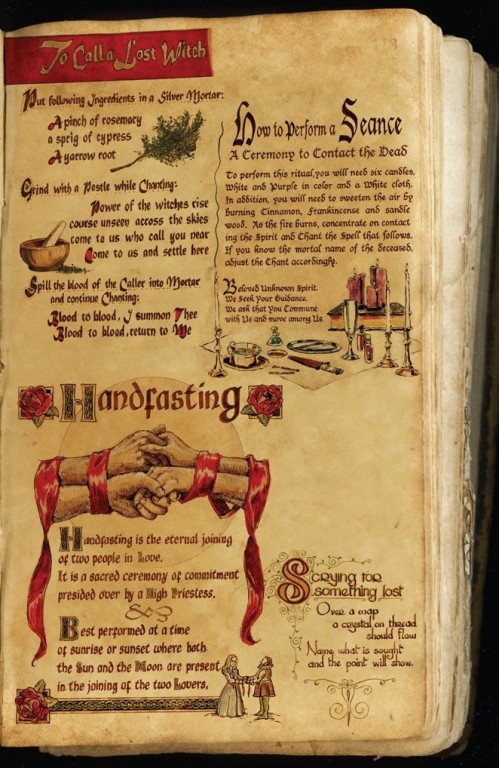 To Call a Lost Witch
Put following Ingredients in a Silver Mortar:
A pinch of rosemary
a sprig of cypress
A yarrow root
Grind with a Pestle while Chanting:
Power of the witches rise
course unseen across the skies
come to us who call you near
Come to us and settle here
Spill the blood of the Caller into Mortar
and continue Chanting:
Blood to blood, I summon Thee
Blood to blood, return to Me
How to Perform a Seance
A Ceremony to Contact the Dead
To perform this ritual, you will need six candles,
White and Purple in color and a White cloth.
In addition, you will need to sweeten the air by
burning Cinnamon, Frankincense and sandle
wood. As the fire burns, concentrate on contact
ing the Spirit and Chant the Spell that follows.
If you know the mortal name of the deceased,
adjust the Chant accordingly.
Beloved Unknown Spirit,
We Seek Your Guidance.
We ask that you Commune
with Us and move among Us
Handfasting
Handfasting is the eternal joining
of two people in Love.
It is a sacred ceremony of commitment
presided over by a High Priestess.
Best performed at a time
of sunrise or sunset where both
the Sun and the Moon are present
in the joining of the two Lovers,
Scrying for
something lost
Over a map
a crystal on thread
should flow
Name what is sought
and the point will show.